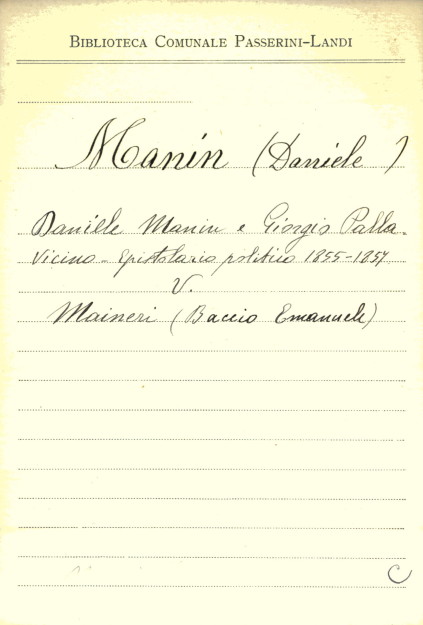 BIBLIOTECA COMUNALE PASSERINI-LANDI
Manin (Daniele)
Daniele Manin e Giorgio Palla-
vicino - Epistolario politico 1855-1857
V.
Maineri (Baccio Emanuele)
C